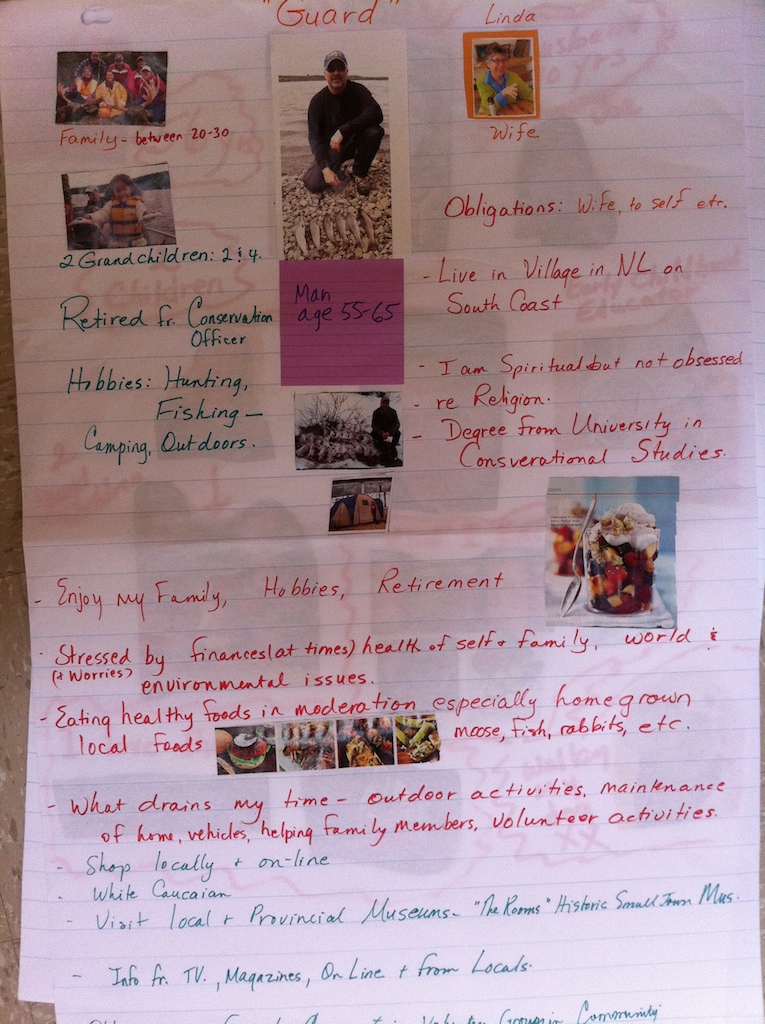 "Guard"
Linda
Family - between 20-30
Wife
2 Grandchildren: 2 & 4.
Obligations: Wife, to self etc.
Man
age 55-65
- Live in Village in NL on
South Coast
Retired fr. Conservation
Officer
Hobbies: Hunting,
Fishing -
Camping, Outdoors.
- I am Spiritual but not obsessed
- re Religion.
- Degree from University in
Consverational Studies.
- Enjoy my Family, Hobbies, Retirement
- Stressed by finances (at times) health of self + family, world &
(+ Worries) environmental issues.
- Eating healthy foods in moderation especially homegrown
local foods moose, fish, rabbits, etc.
- What drains my time - outdoor activities, maintenance
of home, vehicles, helping family members, volunteer activities.
- Shop locally + on-line
- White Caucaian
- Visit local + Provincial Museums - "The Rooms" Historic Small Town Mus.
- Info fr. TV., Magazines, On Line + from Locals.
Volunteer Groups in Community